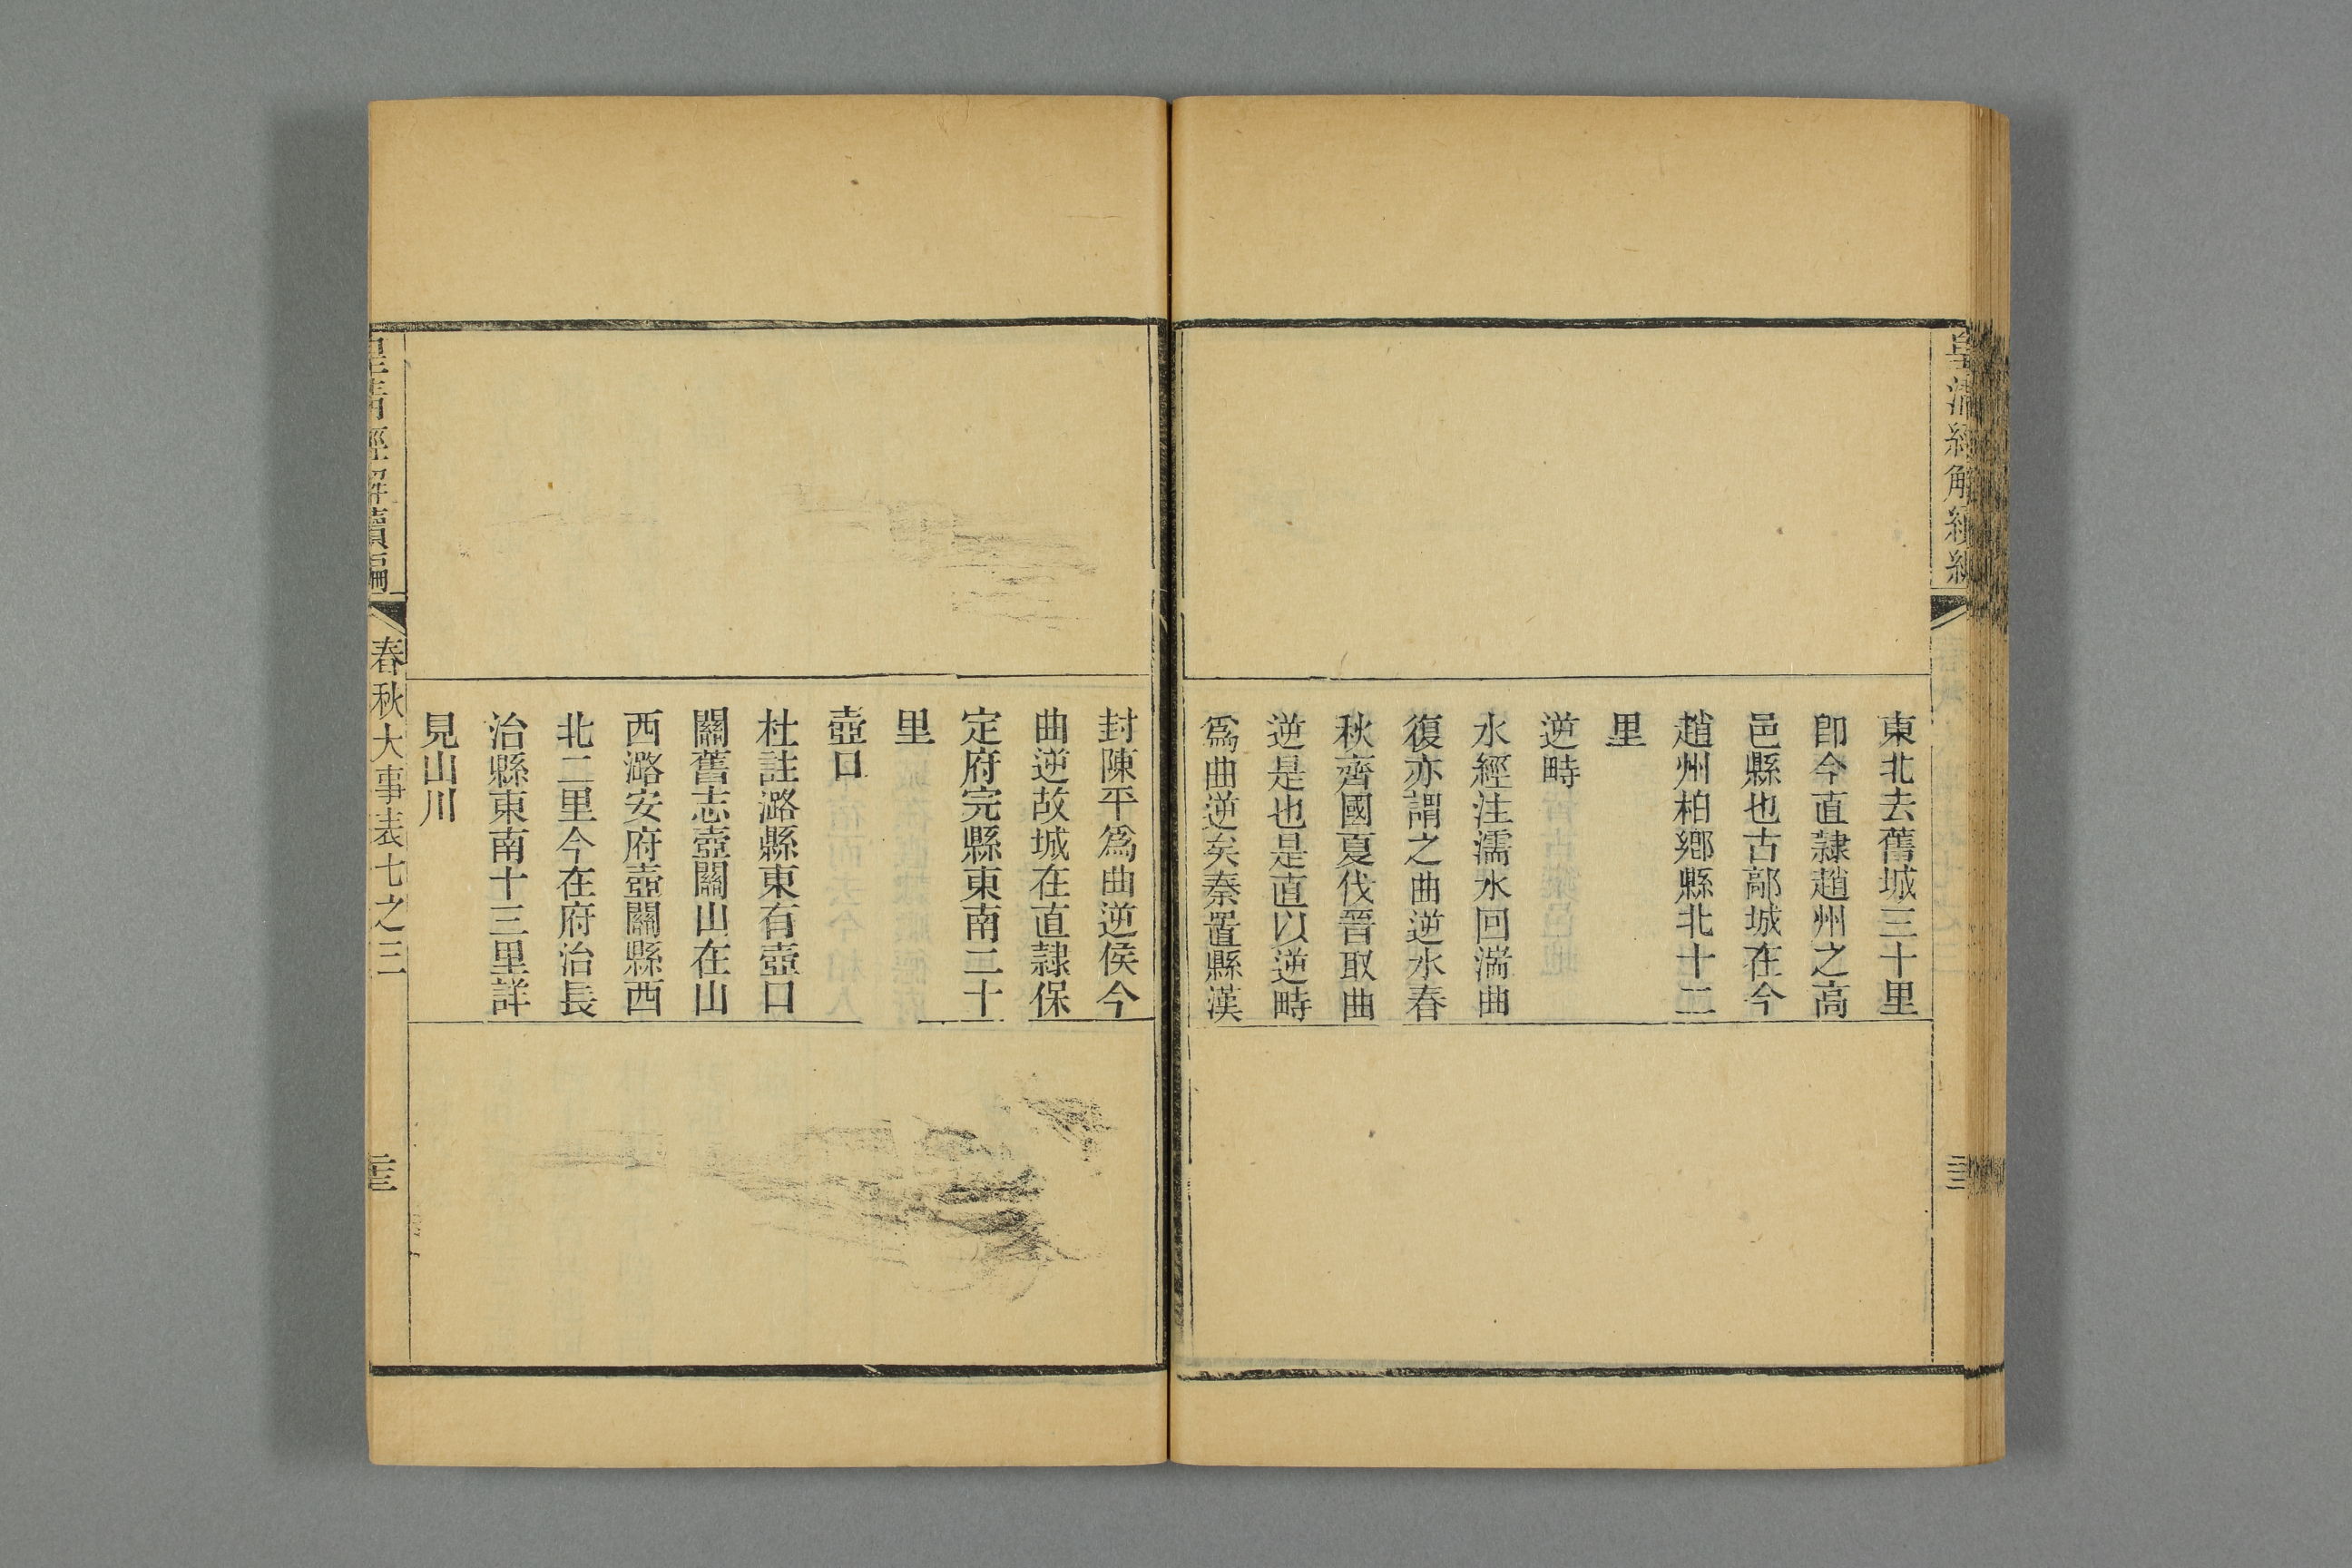 東北去舊城三十里
卽今直隸趙州之高
邑縣也古鄗城在今
趙州柏鄉縣北十二
里
逆畤
水經注濡水回湍曲
復亦謂之曲逆水春
秋齊國夏伐晉取曲
逆是也是直以逆畤
爲曲逆矣秦置縣漢
封陳平爲曲逆侯今
曲逆故城在直隸保
定府完縣東南二十
里
壺口
杜註潞縣東有壺口
關舊志壺關山在山
西潞安府壺關縣西
北二里今在府治長
治縣東南十三里詳
見山川
皇清經解續編
春秋大事表七之三